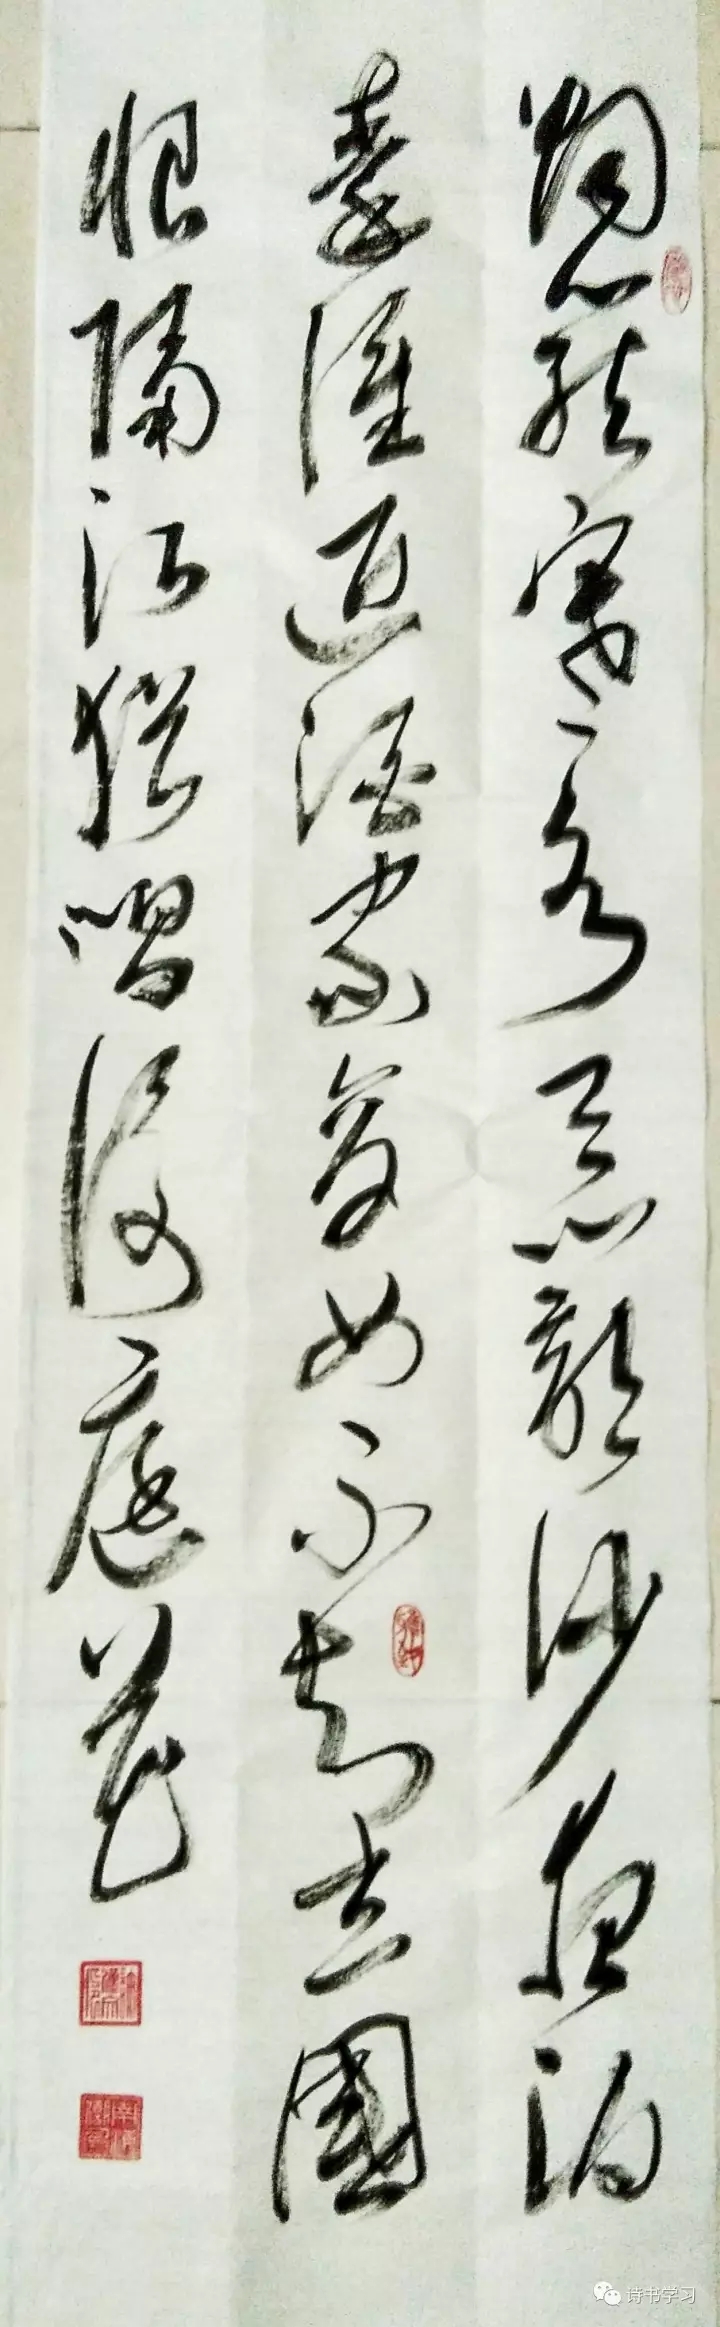 烟籠寒水月籠沙夜泊
秦淮近酒家商女不知亡國
恨隔江猶唱後庭花
诗书学习